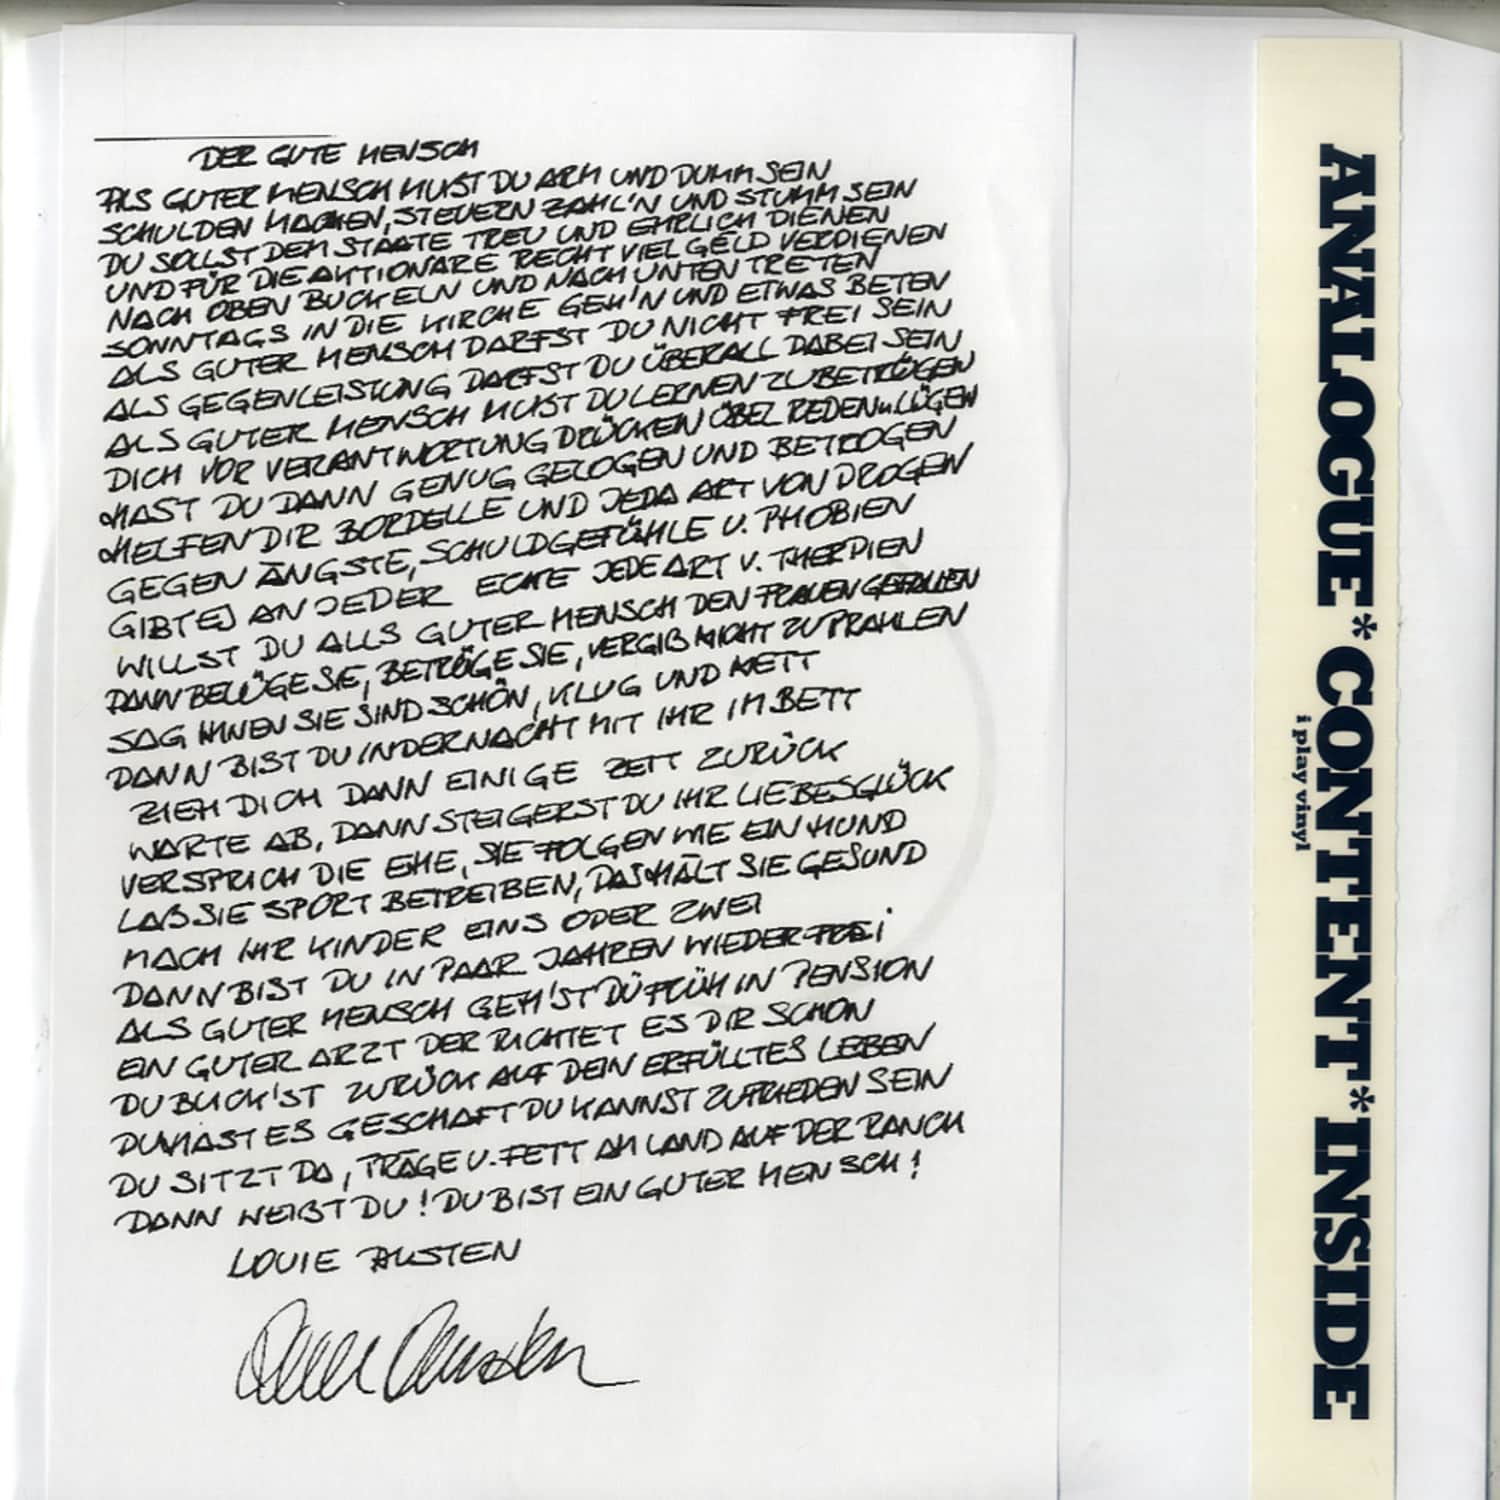 DER GUTE MENSCH
ALS GUTER MENSCH MUST DU ARM UND DUMM SEIN
SCHULDEN MACHEN, STEUERN ZAHL'N UND STUMM SEIN
DU SOLLST DEM STAATE TREU UND EHRLICH DIENEN
UND FÜR DIE AKTIONÄRE RECHT VIEL GELD VERDIENEN
NACH OBEN BUCKELN UND NACH UNTEN TRETEN
SONNTAGS IN DIE KIRCHE GEH'N UND ETWAS BETEN
ALS GUTER MENSCH DARFST DU NICHT FREI SEIN
ALS GEGENLEISTUNG DARFST DU ÜBERALL DABEI SEIN
ALS GUTER MENSCH MUST DU LERNEN ZU BETRÜGEN
DICH VOR VERANTWORTUNG DRÜCKEN ÜBEL REDEN u. LÜGEN
HAST DU DANN GENUG GELOGEN UND BETROGEN
HELFEN DIR BORDELLE UND JEDA ART VON DROGEN
GEGEN ÄNGSTE, SCHULDGEFÜHLE U. PHOBIEN
GIBT ES AN JEDER ECKE JEDE ART V. THERPIEN
WILLST DU ALLS GUTER MENSCH DEN FRAUEN GEFALLEN
DANN BELÜGE SIE, BETRÜGE SIE, VERGIß NICHT ZU PRAHLEN
SAG IHNEN SIE SIND SCHÖN, KLUG UND NETT
DANN BIST DU IN DER NACHT MIT IHR IM BETT
ZIEH DICH DANN EINIGE ZEIT ZURÜCK
WARTE AB, DANN STEIGERST DU IHR LIEBESGLÜCK
VERSPRICH DIE EHE, SIE FOLGEN WIE EIN HUND
LAß SIE SPORT BETREIBEN, DAS HÄLT SIE GESUND
MACH IHR KINDER EINS ODER ZWEI
DANN BIST DU IN PAAR JAHREN WIEDER FREI
ALS GUTER MENSCH GEH'ST DU FRÜH IN PENSION
EIN GUTER ARZT DER RICHTET ES DIR SCHON
DU BLICK'ST ZURÜCK AUF DEIN ERFÜLLTES LEBEN
DU HAST ES GESCHAFT DU KANNST ZUFRIEDEN SEIN
DU SITZT DA, TRÄGE U. FETT AM LAND AUF DER RANCH
DANN WEIßT DU! DU BIST EIN GUTER MENSCH!
LOUIE AUSTEN
Louie Austen
ANALOGUE*CONTENT*INSIDE
i play vinyl